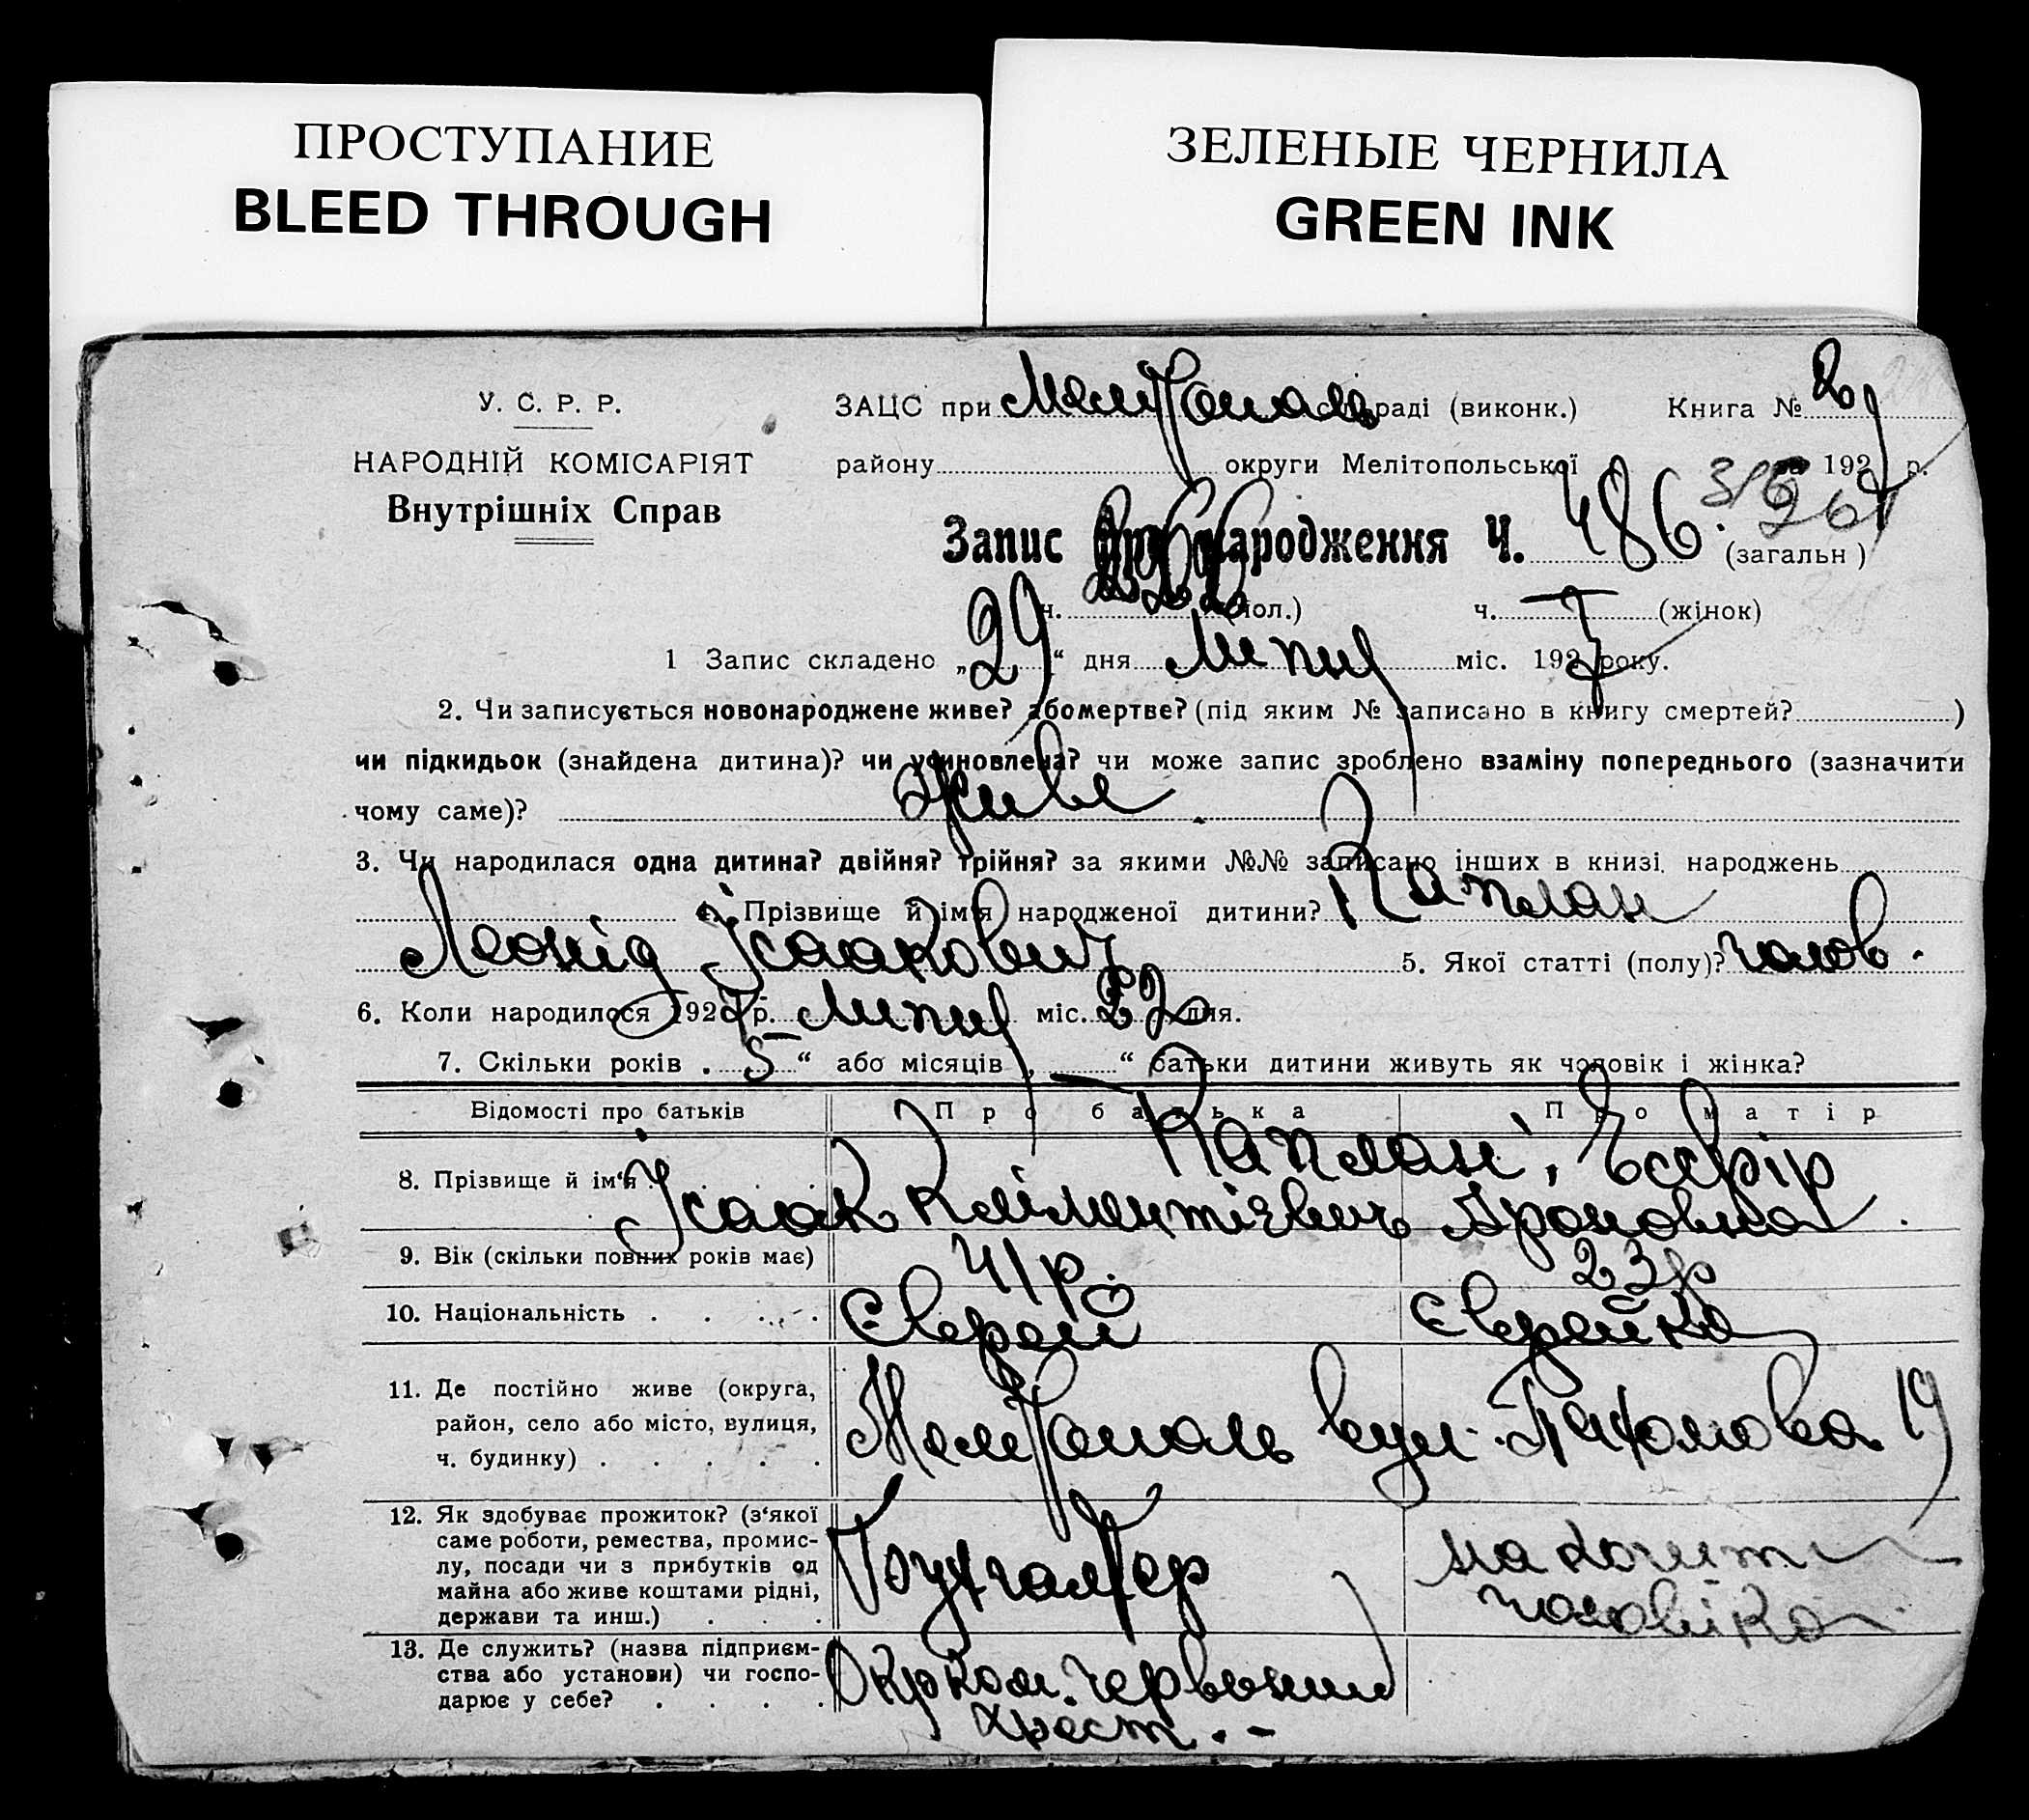 ПРОСТУПАНИЕ
BLEED THROUGH
ЗЕЛЕНЫЕ ЧЕРНИЛА
GREEN INK
У. С. Р. Р.
НАРОДНІЙ КОМІСАРІЯТ
Внутрішніх Справ
ЗАЦС при Мелітополь раді (виконк.) Книга №
району округи Мелітопольської 192 р.
Запис про народження Ч. 486. (загальн)
ч. 266 (чол.) ч. — (жінок)
1 Запис складено „29“ дня Липня міс. 1927 року.
2. Чи записується новонароджене живе? або мертве? (під яким № записано в книгу смертей? )
чи підкидьок (знайдена дитина)? чи усиновлена? чи може запис зроблено взаміну попереднього (зазначити
чому саме)? Живе
3. Чи народилася одна дитина? двійня? трійня? за якими №№ записано інших в книзі народжень
4. Прізвище й ім'я народженої дитини? Каплан
Леонід Ісаакович 5. Якої статті (полу)? чолов.
6. Коли народилося 1927 р. Липня міс. 22 дня.
7. Скільки років „5“ або місяців „—“ батьки дитини живуть як чоловік і жінка?
Відомості про батьків Про батька Про матір
8. Прізвище й ім'я Каплан, Ісаак Кліментієвич Есфір Ароновна.
9. Вік (скільки повних років має) 41 р. 23 р
10. Національність Єврей Єврейка
11. Де постійно живе (округа,
район, село або місто, вулиця,
ч. будинку) Мелітополь вул. 19
12. Як здобуває прожиток? (з'якої
саме роботи, ремества, промис-
лу, посади чи з прибутків од
майна або живе коштами рідні,
держави та инш.) Бухгалтер на кошти чоловіка
13. Де служить? (назва підприєм-
ства або установи) чи госпо-
дарює у себе? Окрком. Червоний
Хрест. -